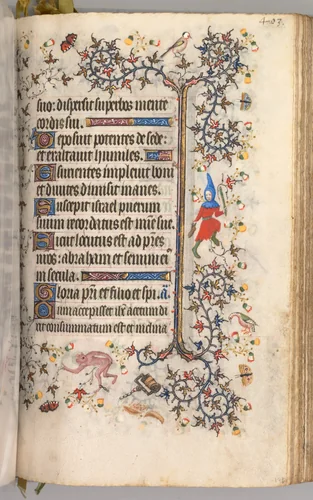 407.
suo: dispersit superbos mente
cordis sui.
Deposuit potentes de sede:
et exaltavit humiles.
Esurientes implevit boni
et divites dimisit inanes.
Suscepit israel puerum
suum recordatus est mīe sue.
Sicut locutus est ad pres
nros: abraham et semini ei
in secula.
Gloria pri et filio et spi. ā.
Cum accepisset ihs acetum di
xit consummatum est et inclina